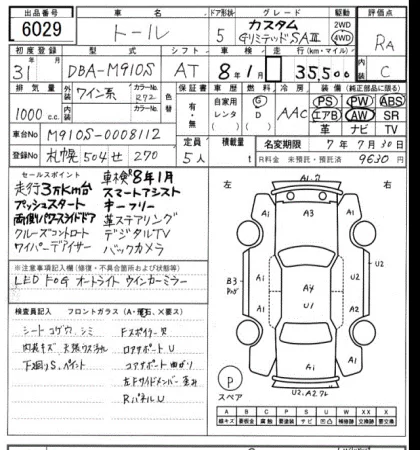 出品番号 車名 ドア形状 グレード 評価点
6029 トール 5 カスタム Gリミテッド SAIII 2WD 4WD RA
初度登録 型式 シフト 車検 走行(km・マイル) C
31 DBA-M910S AT 8年1月 35,500
排気量 外装 ワイン系 カラーNo. R72 色替 保証書 車歴 燃料 冷房 装備(純正部品に限る)
1000 c.c. 内装 カラーNo. 有・無 自家用 レンタ G D AAC PS PW ABS
エアB AW SR
革 ナビ TV
車台No M910S-0008112 定員 5人 積載量 名変期限 7年7月30日
登録No 札幌 504 せ 270 R料金 未預託・預託済 9630
セールスポイント
車検R8年1月
走行3万Km台 スマートアシスト
プッシュスタート キーフリー
両側パワースライドドア 革ステアリング
クルーズコントロート デジタルTV
ワイパーデアイサー バックカメラ
※注意事項記入欄(修復・不具合箇所および状態)
LED FOG オートライト ウインカーミラー
検査員記入 フロントガラス(A・飛石、X要ス)
シート コゲ穴、シミ Fスポイラー
内装キズ 天張り
下廻りS、ペイント コアサポート
左Fサイドメンバー 歪み
RパネルU
左 右
A1.U
A1 A3 A1
B3 A1 A4 A1 U2
U1
A1 A1 U2
A1
P
スペア
U2.A2
A B C P S U W X XX
線キズ 要板金 腐蝕 要塗装 サビ 凹凸 補修跡 要交換 交換跡